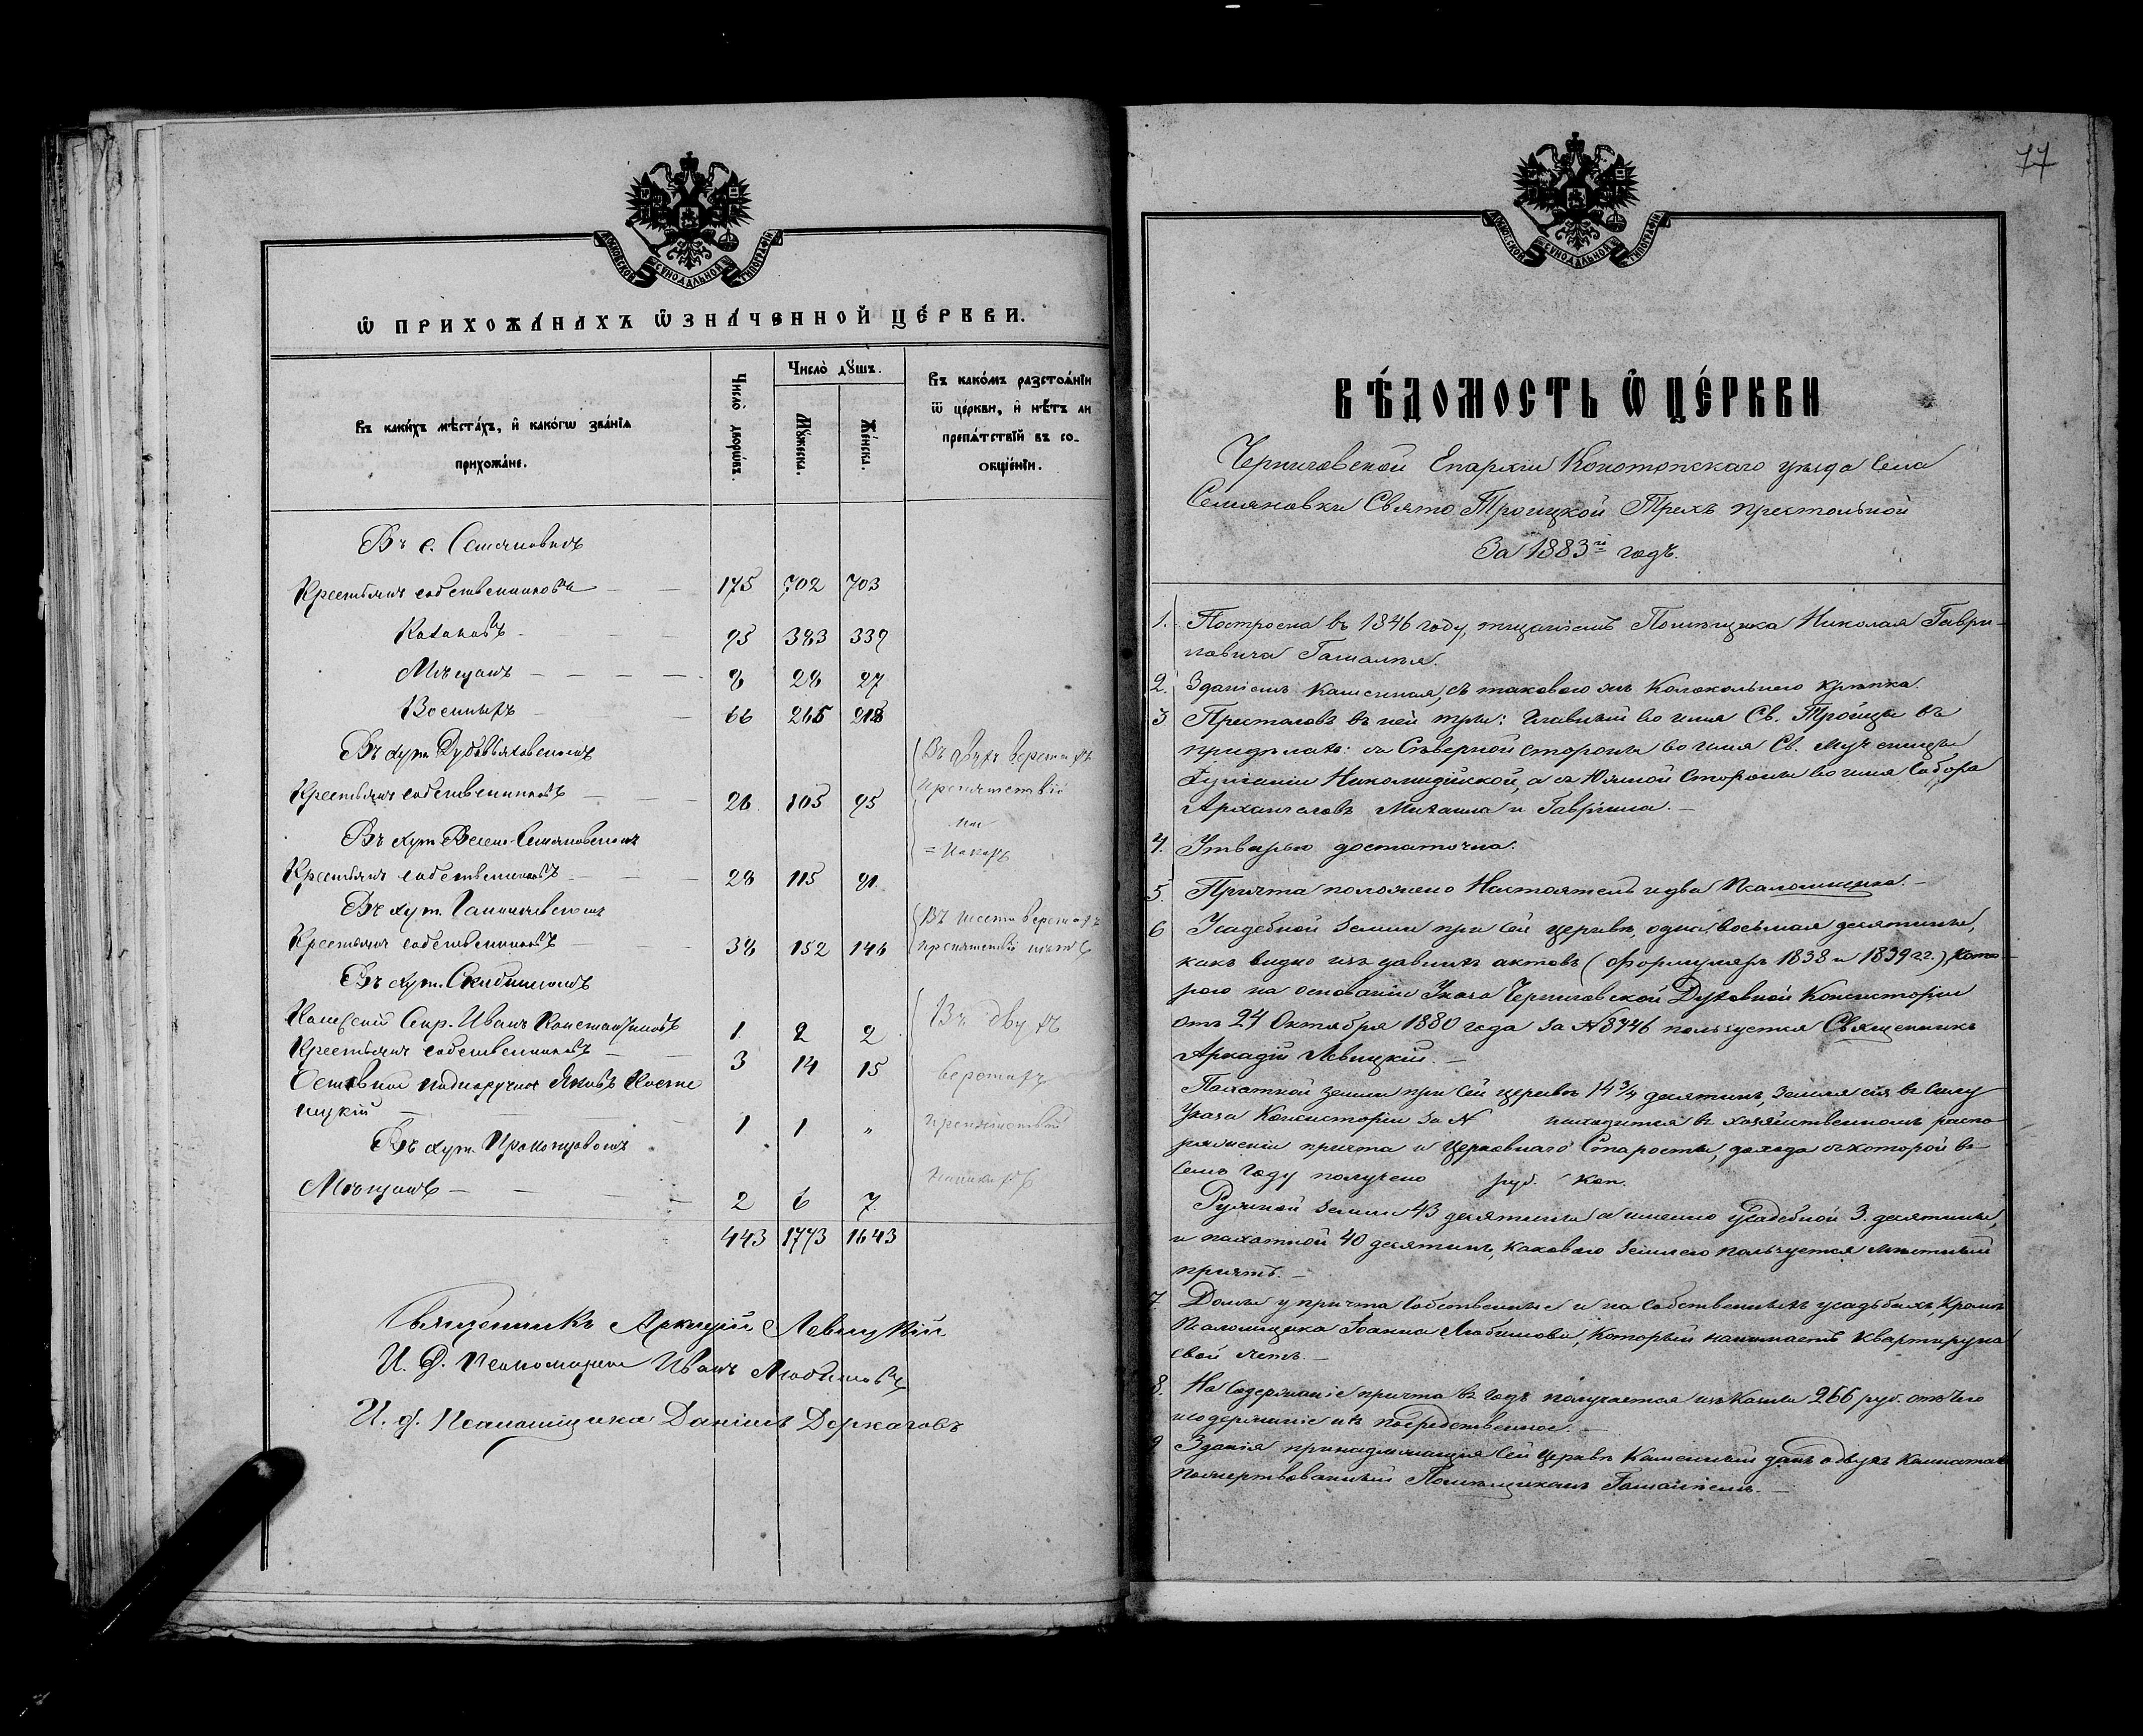 МОСКОВСКОЙ СѴНОДАЛЬНОЙ ТИПОГРАФІИ
Ѿ ПРИХОЖА́НАХЪ ѠЗНА́ЧЕННОЙ ЦЕ́РКВИ.
Въ каки́хъ мѣста́хъ, и҆ како́гѡ зва́нїѧ
прихожа́не.
Число̀ дворѡ́въ.
Число̀ дꙋ́шъ.
Мꙋ́жеска.
Же́нска.
Въ како́мъ разстоѧ́нїи
ѿ це́ркви, и҆ нѣ́тъ ли
препѧ́тствїй въ со-
общенїи.
Въ с. Семяновкѣ
Крестьянъ собственниковъ — — 175 702 703
Козаковъ — 95 383 339
Мѣщанъ — — — — 8 28 27
Военныхъ — — 66 265 218
Въ хут.
Въ двухъ верстахъ
препятствій
Крестьянъ собственниковъ — — 26 105 95
Въ хут. Семяновскомъ
никакихъ
Крестьянъ собственниковъ — — 28 115 91
Въ хут.
Въ шести верстахъ
Крестьянъ собственниковъ — — 38 152 146
препятствій нѣтъ
Въ хут.
Въ двухъ
Секр. Иванъ Константиновъ 1. 2 2
Крестьянъ собственниковъ — — 3 14 15
верстахъ
Отставной подпоручикъ Яковъ Косте
нецкій — — 1 1 „
препятствій
Въ хут. Прокопцовомъ
никакихъ
Мѣщанъ — — — 2 6 7.
443 1773 1643
Священникъ Аркадій Левицкій
И. д. Псаломщика Иванъ Любимовъ
И. д. Псаломщика Даніилъ Деркачовъ
77
МОСКОВСКОЙ СѴНОДАЛЬНОЙ ТИПОГРАФІИ
ВѢ́ДОМОСТЬ Ѡ҆ ЦЕ́РКВИ
Черниговской Епархіи Конотопскаго уѣзда Села
Семяновки Свято Троицкой Трехъ престольной
За 1883й годъ.
1. Построена въ 1846 году, тщаніемъ Помѣщика Николая Гаври-
ловича Гамалѣя.
2. Зданіемъ каменная, съ таковою же колокольнею крѣпка.
3 Престоловъ въ ней три: главный во имя Св. Тройцы въ
придѣлахъ: съ Сѣверной стороны во имя Св. Мученицы
Никомидійской, а съ Южной стороны во имя Собора
Архангеловъ Михаила и Гавріила. —
4. Утварью достаточна.
5. Причта положено Настоятель и два Псаломщика. —
6 Усадебной земли при сей церквѣ, одна восьмая десятины,
какъ видно изъ давнихъ актовъ (формуляръ 1838 и 1839 гг.) кото-
рою на основаніи Указа Черниговской Духовной Консисторіи
отъ 24 Октября 1880 года за № 8746 пользуется Священникъ
Аркадій Левицкій. —
Пахатной земли при сей церквѣ 14 3/4 десятинъ, земля сія въ силу
Указа Консисторіи за № находится въ хозяйственномъ распо
ряженіи причта и Церковнаго Старосты, дохода съ которой въ
семъ году получено руб. коп.
Ружной земли 43 десятины а именно усадебной 3. десятины,
и пахатной 40 десятинъ, каковою землею пользуется мѣстный
причтъ. —
7. Домы у причта собственные и на собственныхъ усадьбахъ, кромѣ
Псаломщика Іоанна Любимова, который нанимаетъ квартиру на
свой счетъ. —
8. На содержаніе причта въ годъ получается изъ Казны 266 руб. отъ чего
и содержаніе ихъ посредственное. —
9 Зданія принадлежащія сей церквѣ Каменный домъ о двухъ комнатахъ
пожертвованный Помѣщикомъ Гамалѣемъ. —